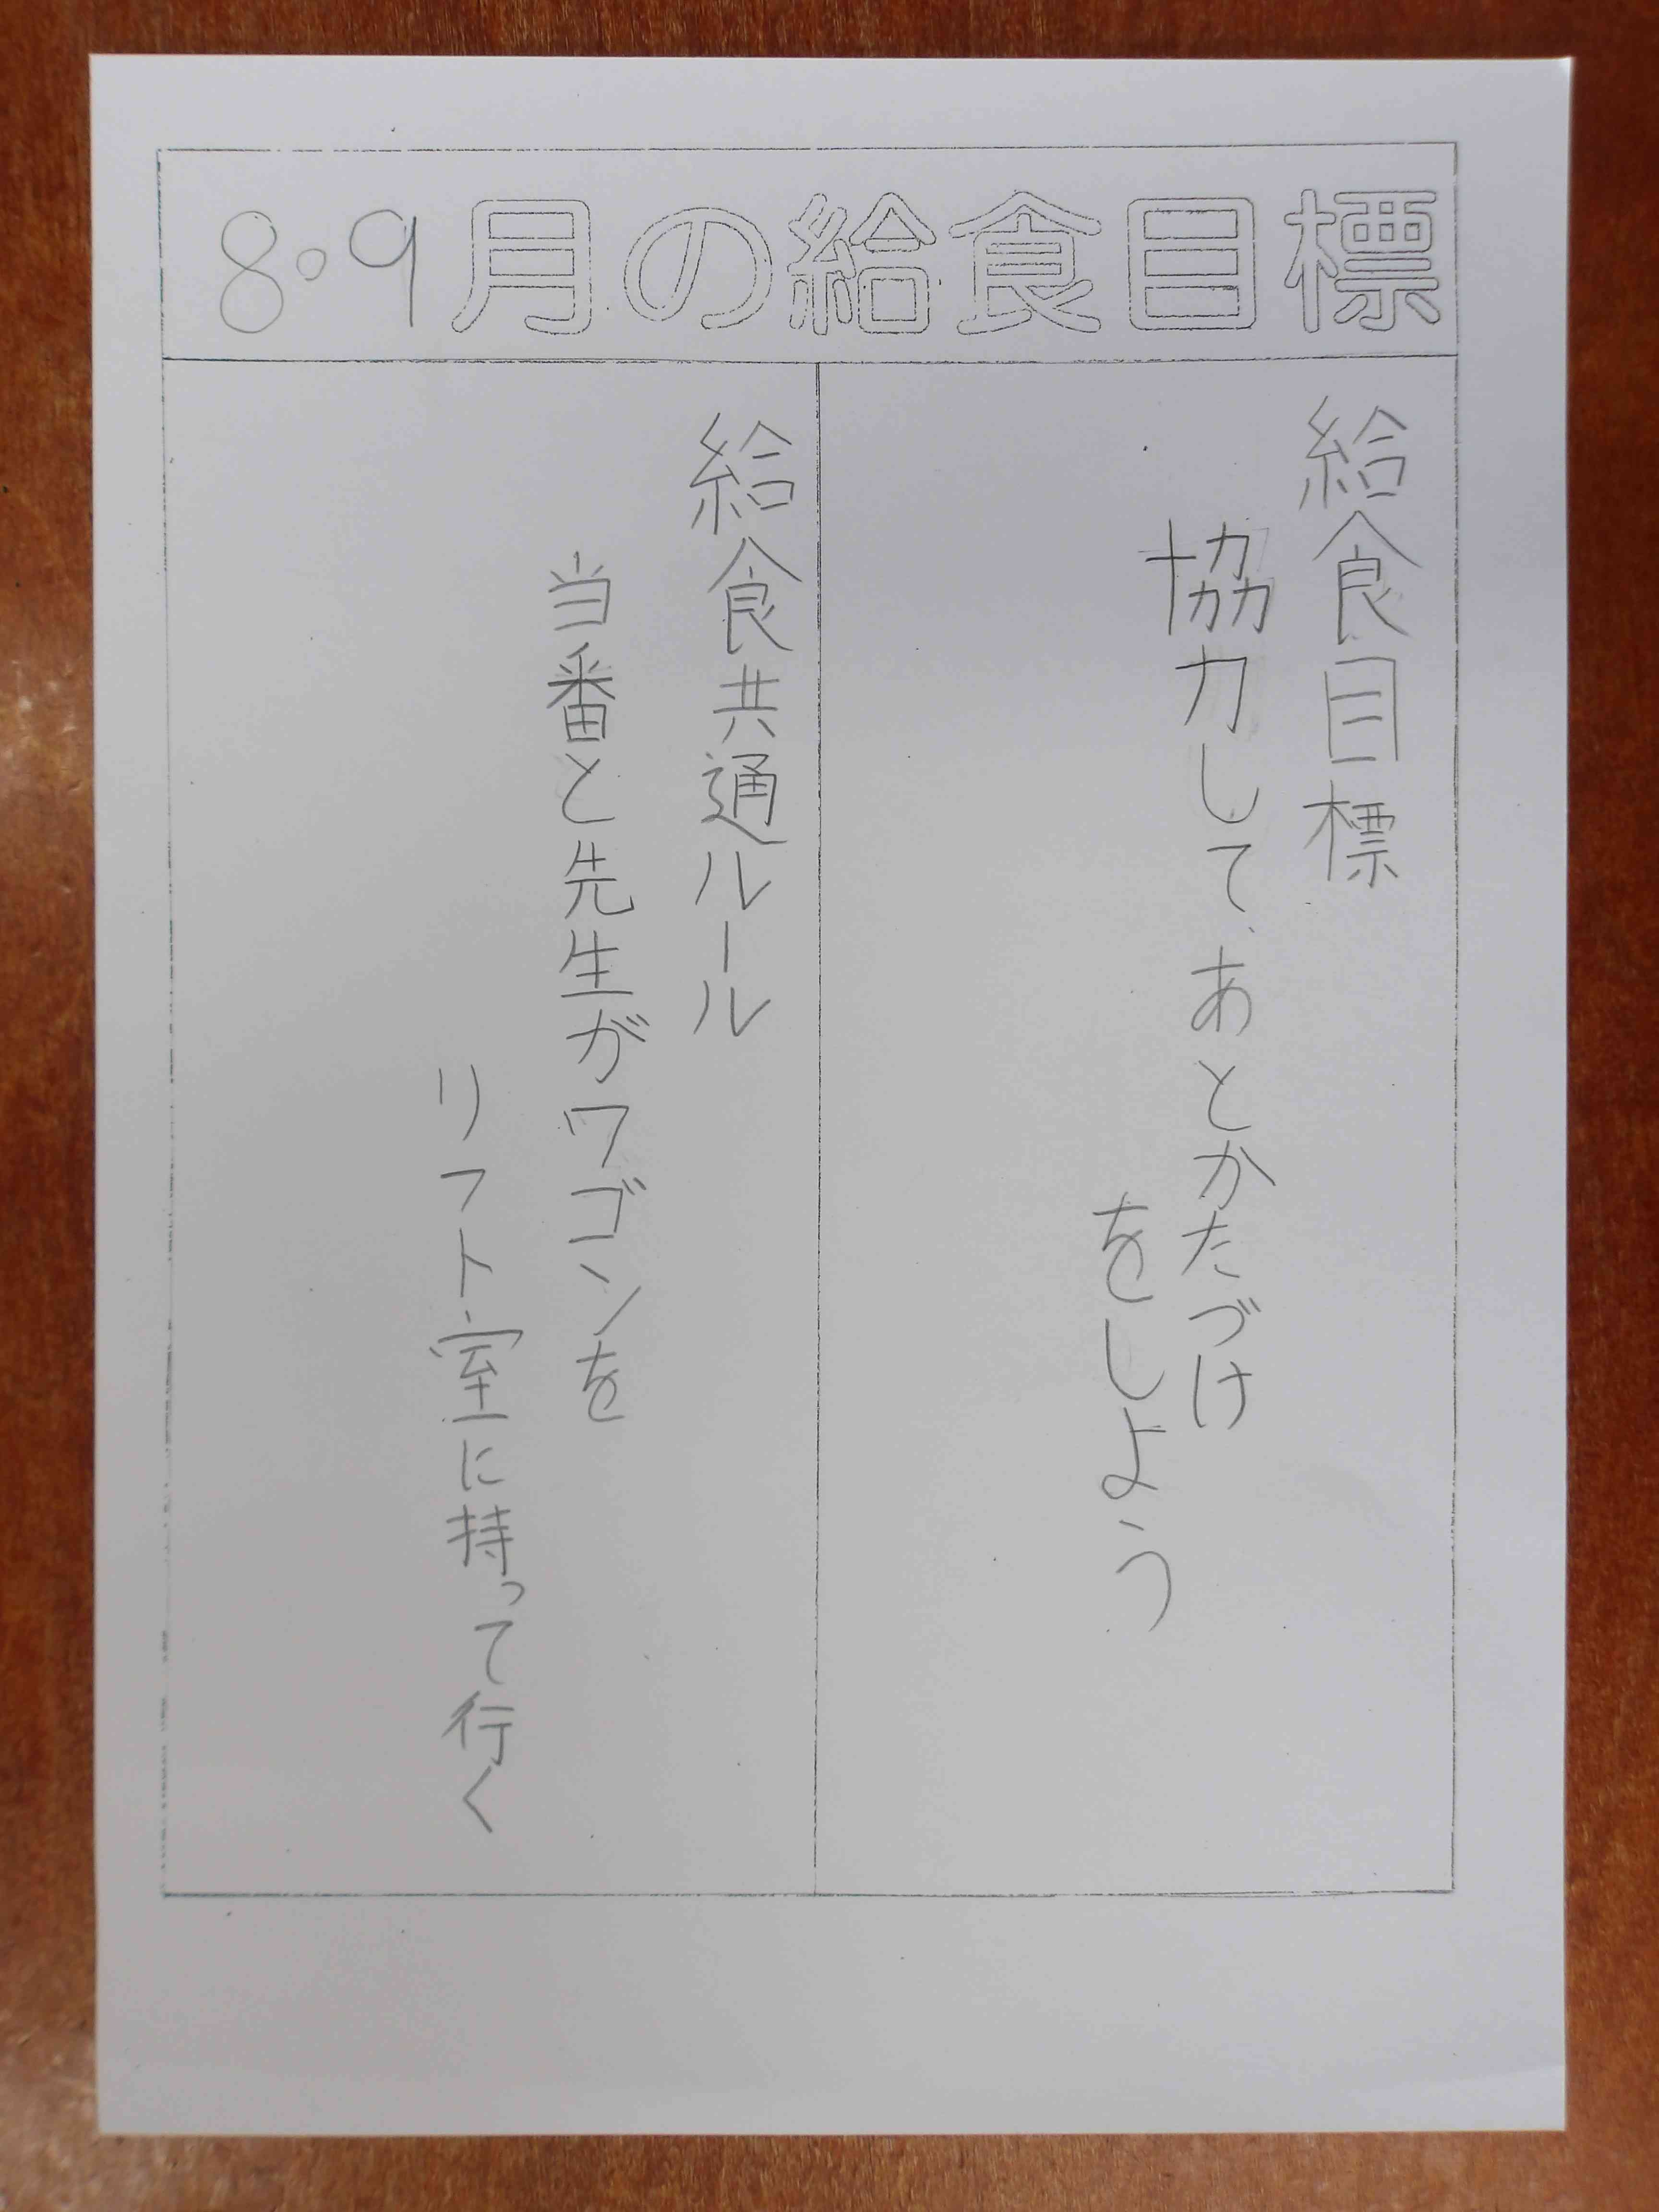 8・9月の給食目標
給食目標
協力して、あとかたづけ
をしよう
給食共通ルール
当番と先生がワゴンを
リフト室に持って行く